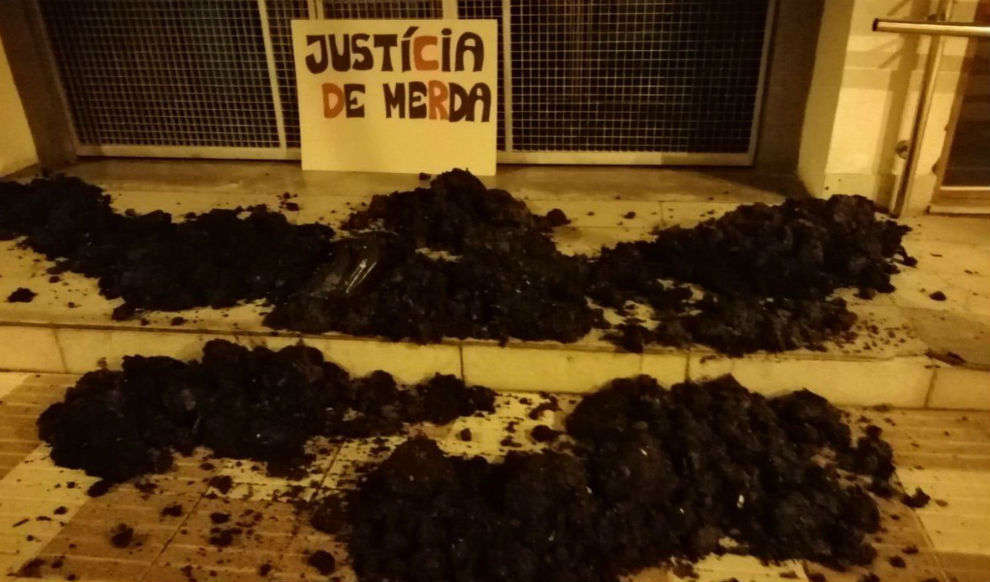 JUSTÍCIA
DE MERDA